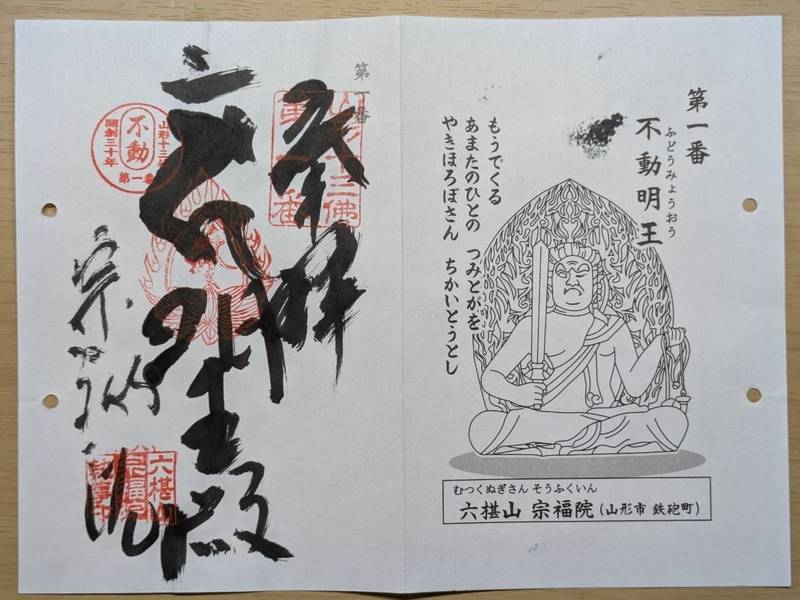 第一番
不動明王
ふどうみょうおう
もうでくる
あまたのひとの　つみとがを
やきほろぼさん　ちかいとうとし
むつくぬぎさん そうふくいん
六椹山 宗福院 (山形市 鉄砲町)
第一番
奉拝
六椹聖殿
宗福院
山形十三
不動
開創三十年
第一番
六椹山
宗福院